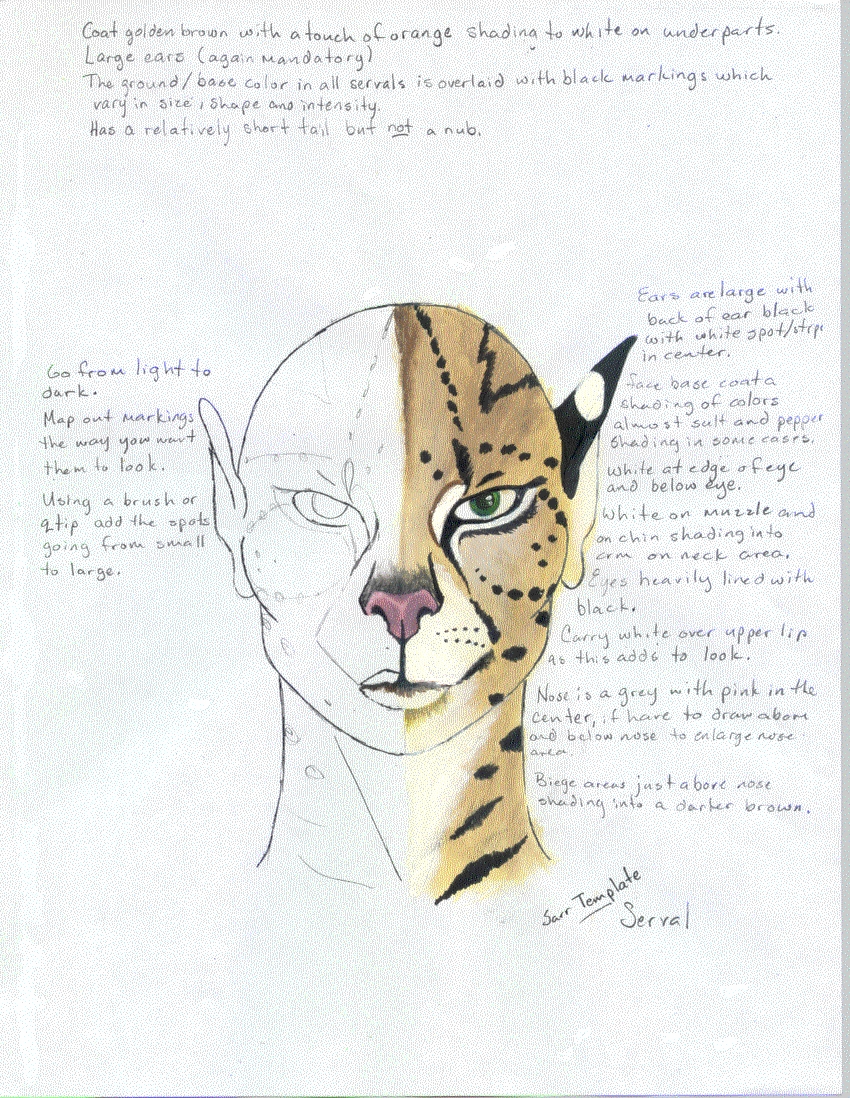 Coat golden brown with a touch of orange shading to white on underparts.
Large ears (again mandatory)
The ground/base color in all servals is overlaid with black markings which
vary in size, shape and intensity.
Has a relatively short tail but not a nub.
Ears are large with
back of ear black
with white spot/stripe
in center.
Go from light to
dark.
Map out markings
the way you want
them to look.
Using a brush or
qtip add the spots
going from small
to large.
face base coat a
shading of colors
almost salt and pepper
shading in some cases.
white at edge of eye
and below eye.
White on muzzle and
on chin shading into
on neck area.
Eyes heavily lined with
black.
Carry white over upper lip
as this adds to look.
Nose is a grey with pink in the
center, if have to draw above
and below nose to enlarge nose
area.
Biege areas just above nose
shading into a darker brown.
Template
Serval